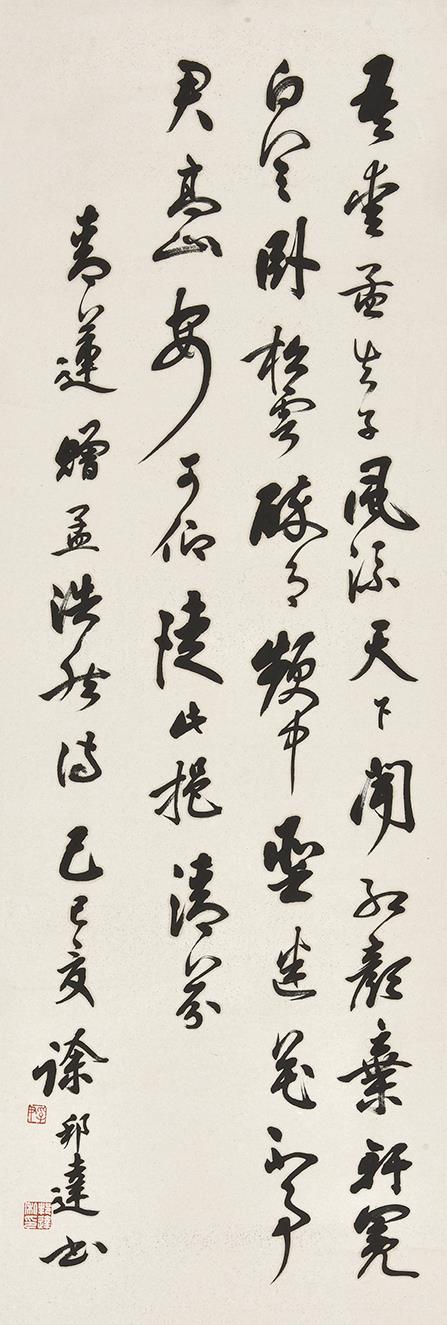 吾愛孟夫子風流天下聞紅顏棄軒冕
白首臥松雲醉月頻中聖迷花不事
君高山安可仰徒此挹清芬
青蓮贈孟浩然詩己巳夏徐邦達書